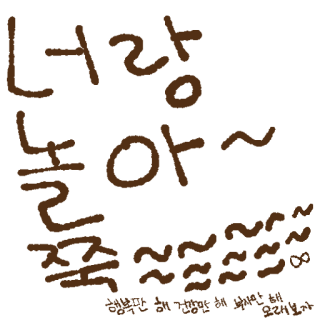 너랑
놀아~
쭉~~~~~~~~~~~~∞
행복만 해 건강만 해 부자만 해
오래보자